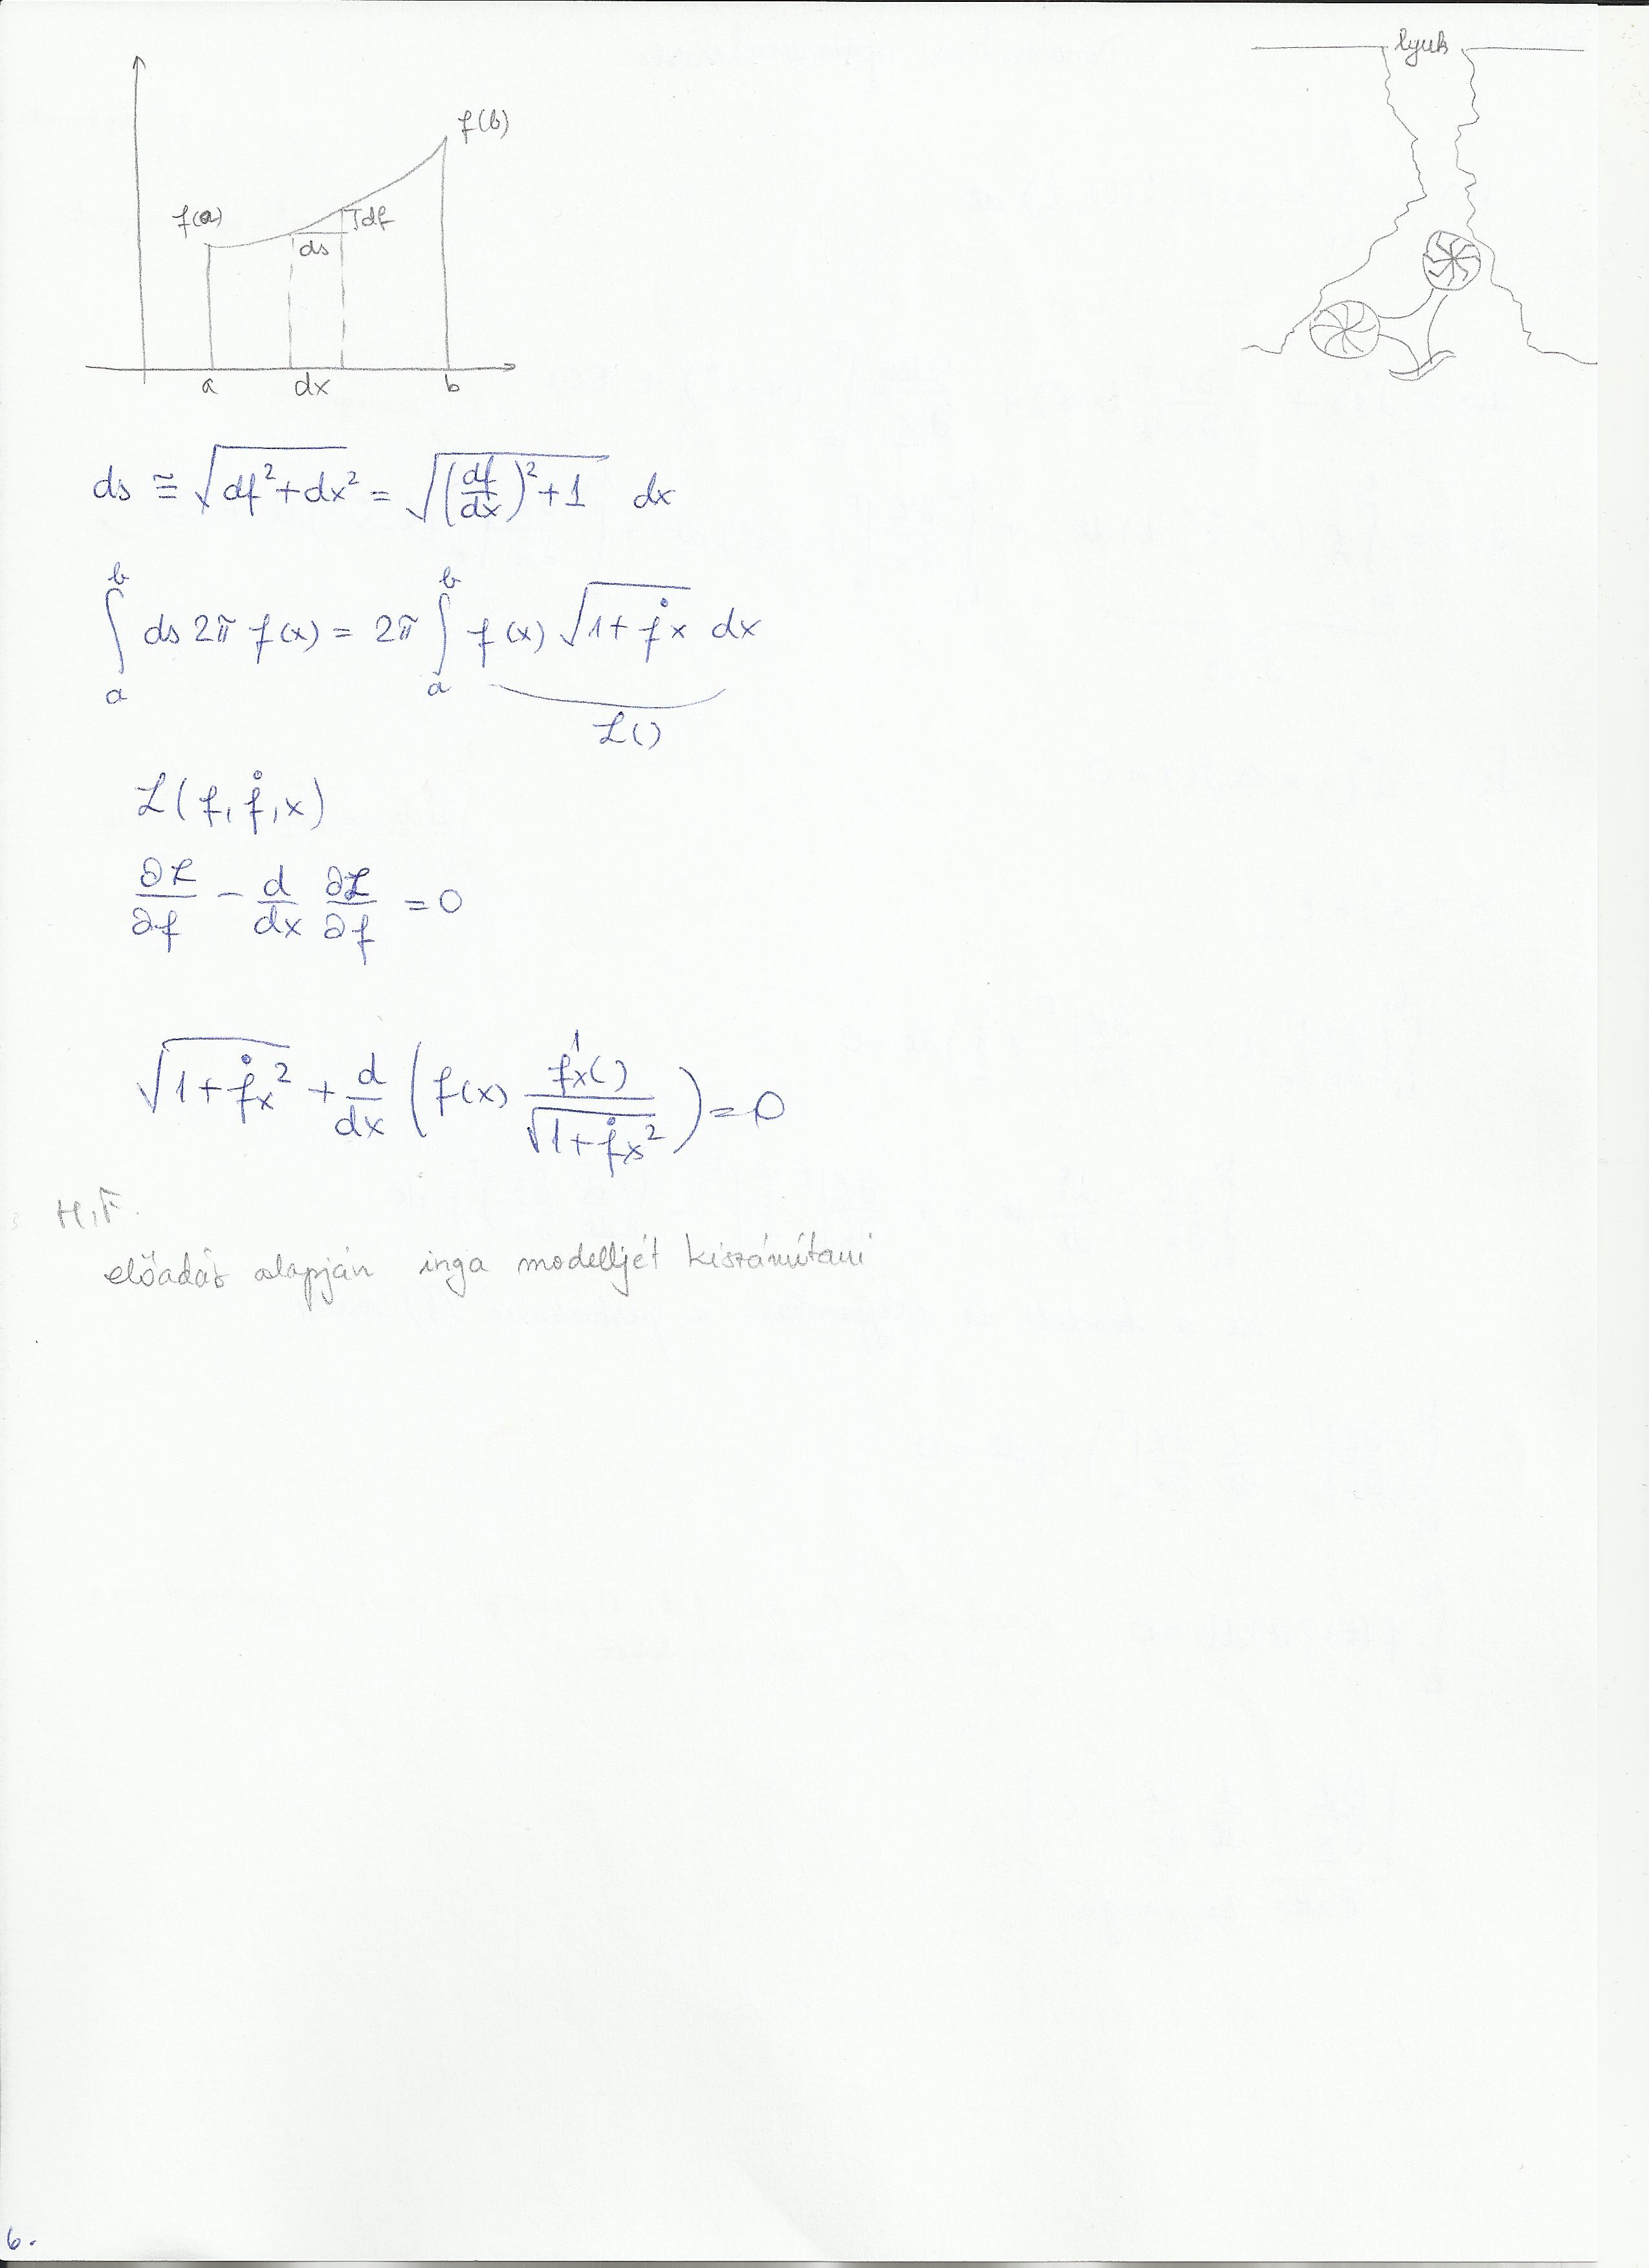 lyuk
f(b)
f(a)
df
ds
a dx b
ds ≅ √(df²+dx²) = √((df/dx)²+1) dx
∫ₐᵇ ds 2π f(x) = 2π ∫ₐᵇ f(x) √(1+ḟx) dx
ℒ()
ℒ(f, ḟ, x)
∂ℒ/∂f − d/dx ∂ℒ/∂f = 0
√(1+ḟx²) + d/dx (f(x) f'x()/√(1+ḟx²)) = 0
H.F.
előadás alapján inga modelljét kiszámítani
6.